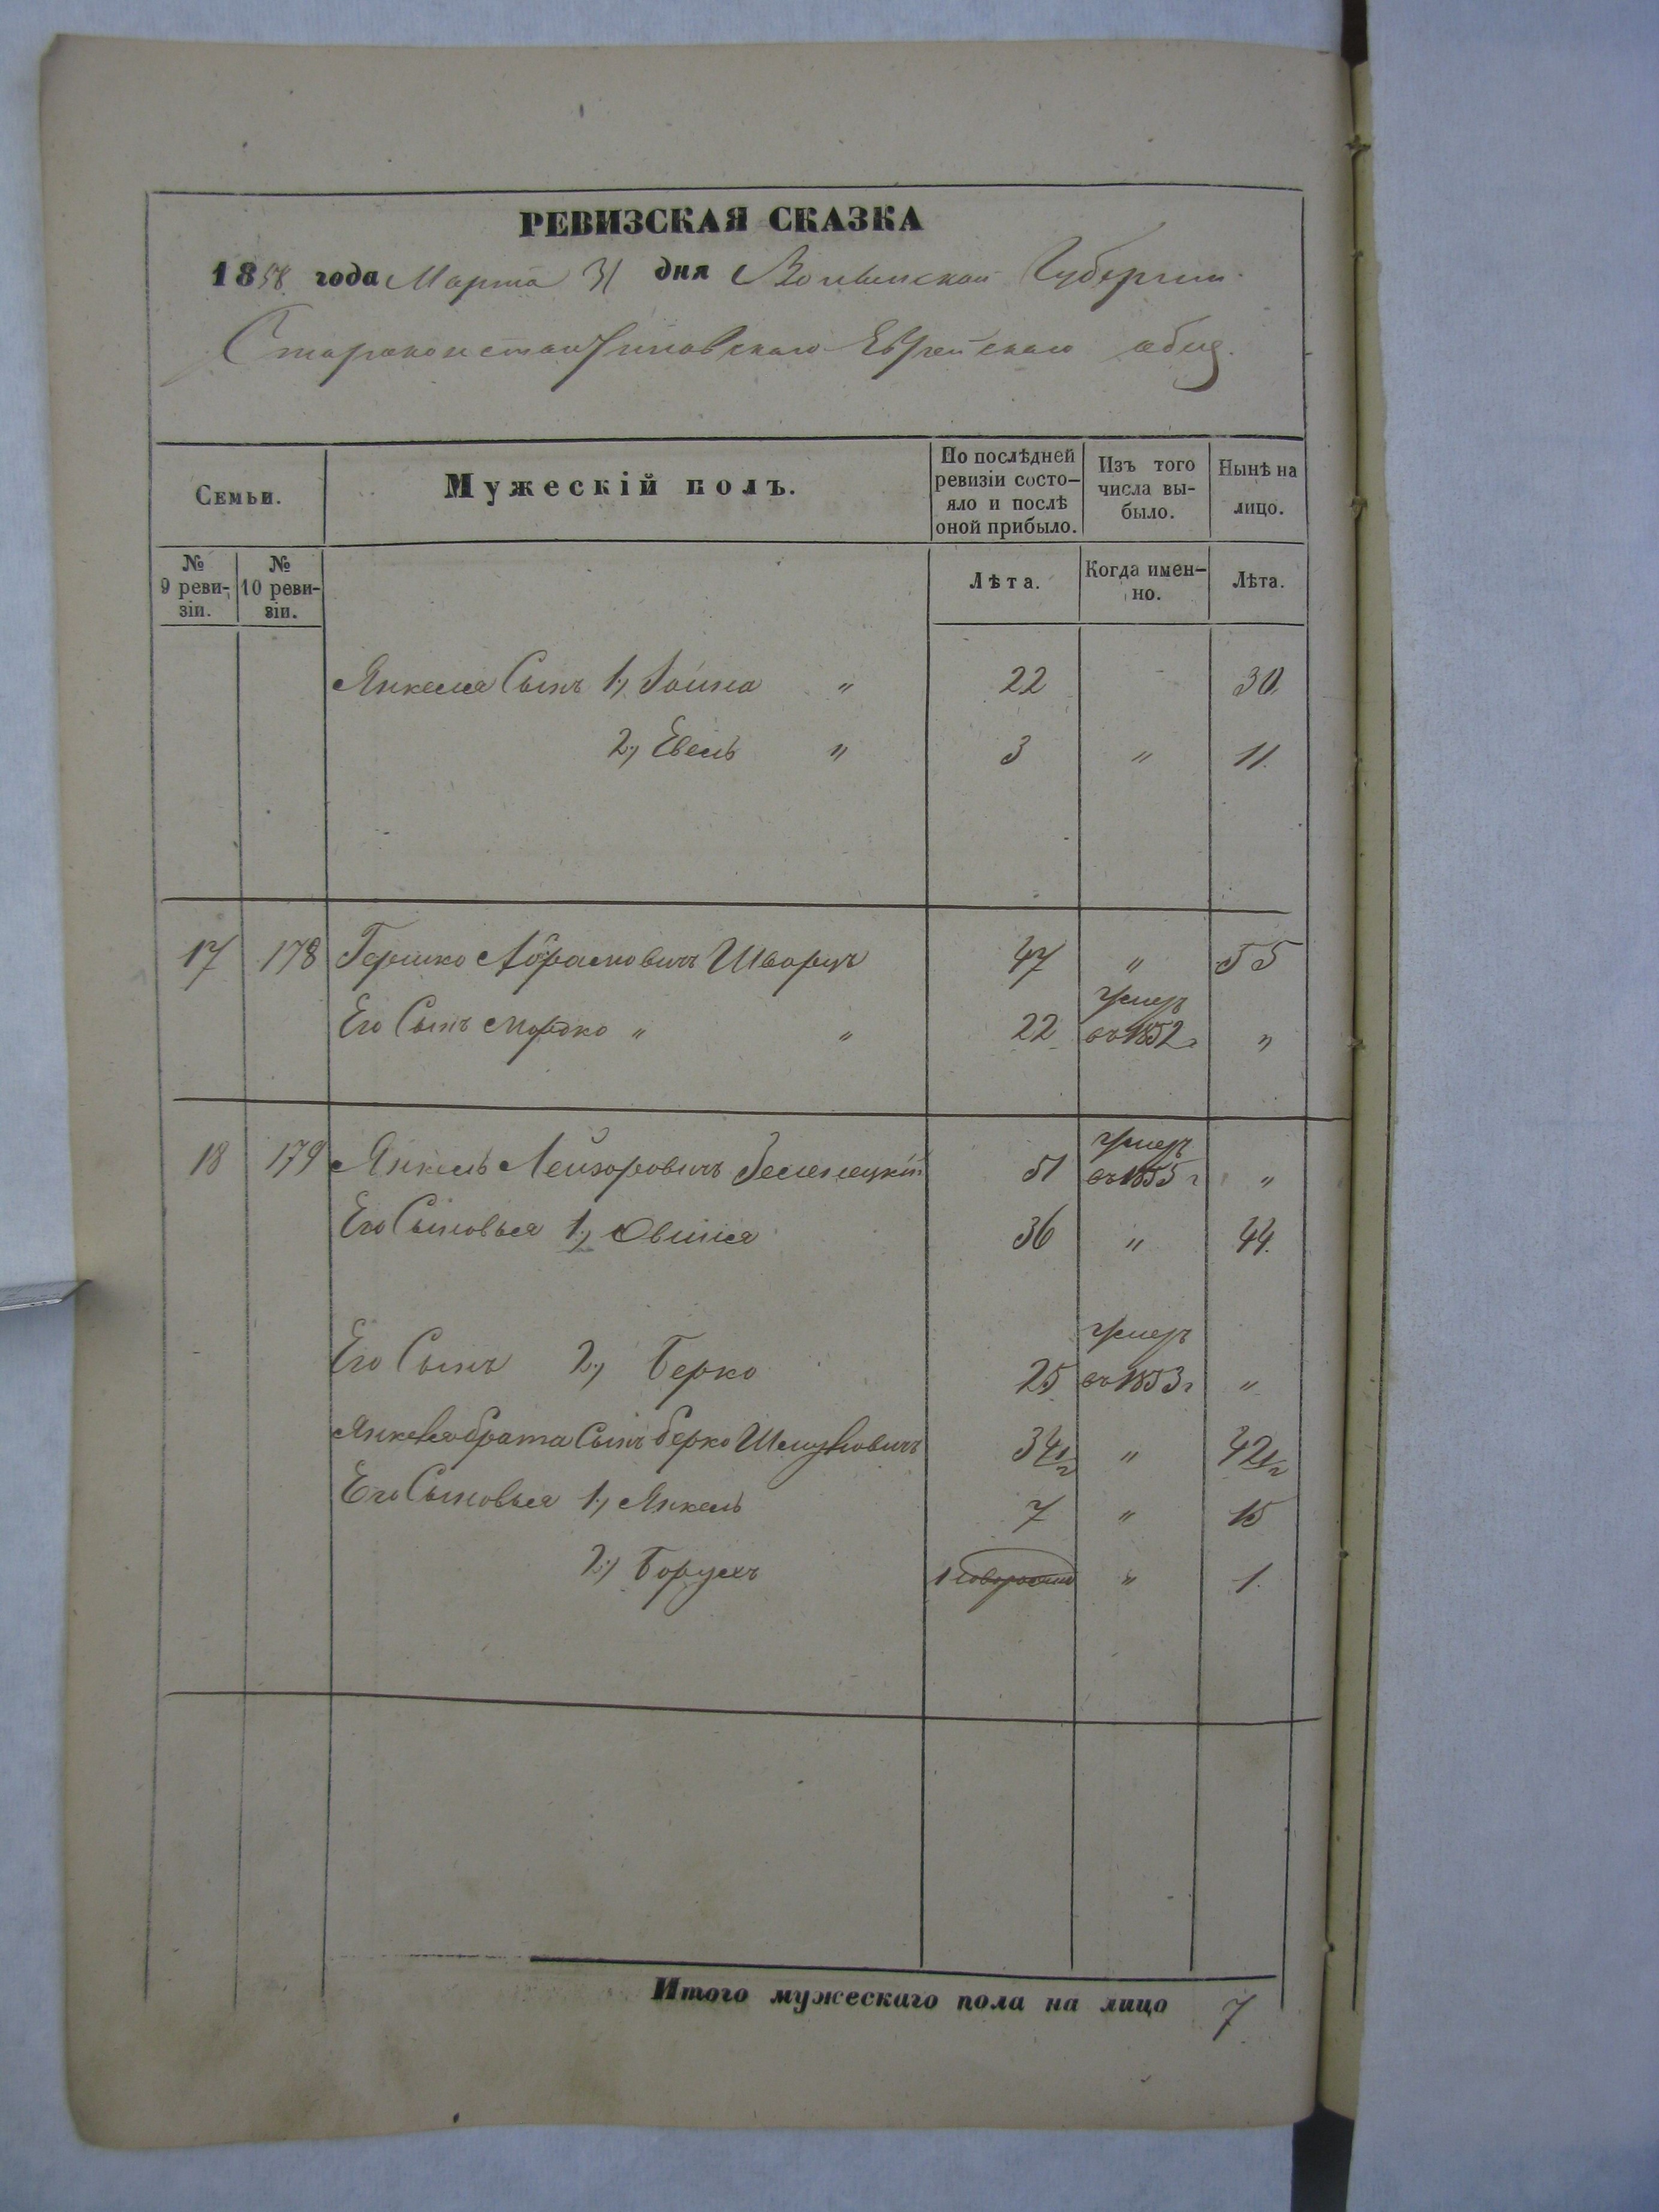 РЕВИЗСКАЯ СКАЗКА
1858 года Марта 31 дня Волынской Губернии
Староконстантиновскаго Еврейскаго общ.
Семьи. Мужескій полъ. По послѣдней ревизіи состо- яло и послѣ оной прибыло. Изъ того числа вы- было. Нынѣ на лицо.
№ 9 реви- зіи. № 10 реви- зіи. Лѣта. Когда имен- но. Лѣта.
Янкеля Сынъ 1, " 22 30
2, Евель " 3 " 11
17 178 Гершко Абрамовичъ Шварцъ 47 " 55
Его Сынъ Мордко " " 22 умеръ въ 1852 г "
18 179 Янкель Лейзоровичъ Зеленецкій 51 умеръ въ 1855 г "
Его Сыновья 1, Овшия 36 " 44
Его Сынъ 2, Берко 25 умеръ въ 1853 г "
Янкеля брата Сынъ Берко Шмулёвичъ 34 1/2 " 42 1/2
Его Сыновья 1, Янкель 7 " 15
2, Борухъ 1 " 1
Итого мужескаго пола на лицо 7